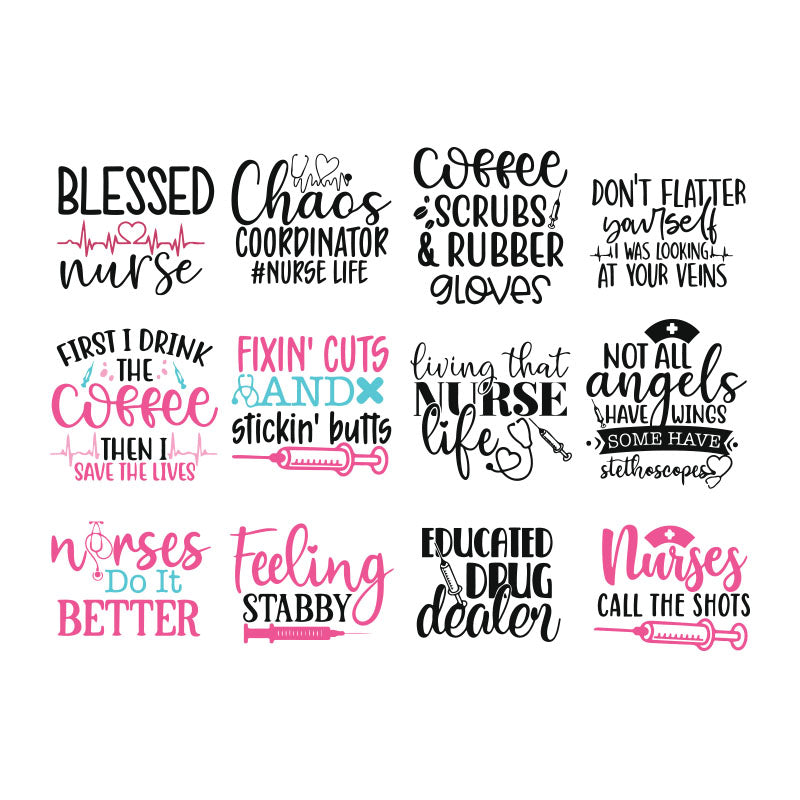 BLESSED
nurse
Chaos
COORDINATOR
#NURSE LIFE
coffee
SCRUBS
& RUBBER
gloves
DON'T FLATTER
yourself
I WAS LOOKING
AT YOUR VEINS
FIRST I DRINK
THE
Coffee
THEN I
SAVE THE LIVES
FIXIN' CUTS
AND
stickin' butts
living that
NURSE
life
NOT ALL
angels
HAVE WINGS
SOME HAVE
stethoscopes
nurses
Do It
BETTER
Feeling
STABBY
EDUCATED
DRUG
dealer
Nurses
CALL THE SHOTS